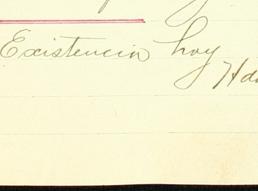 Existencia hoy